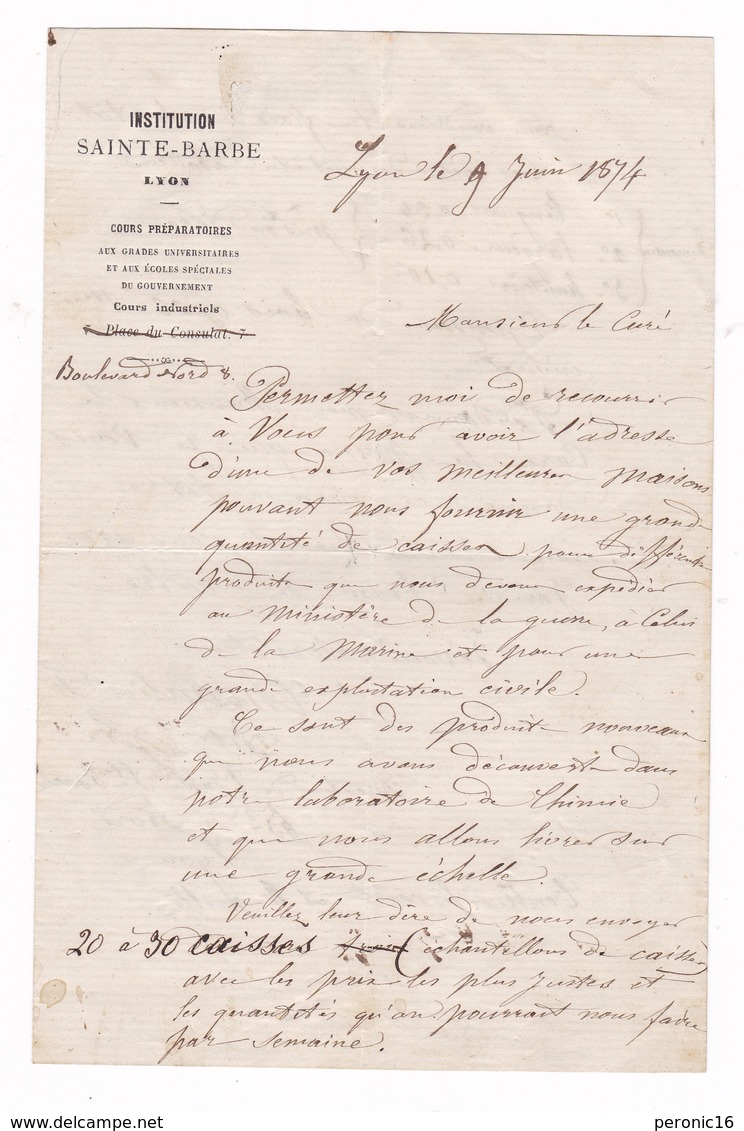 INSTITUTION
SAINTE-BARBE
LYON
COURS PRÉPARATOIRES
AUX GRADES UNIVERSITAIRES
ET AUX ÉCOLES SPÉCIALES
DU GOUVERNEMENT
Cours industriels
7 Place du Consulat. 7
Boulevard Nord 8.
Lyon le 9 Juin 1874
Monsieur le Curé
Permettez moi de recourir
à Vous pour avoir l'adresse
d'une de vos meilleures maisons
pouvant nous fournir une grande
quantité de caisses pour différents
produits que nous devons expédier
au Ministère de la guerre, à Celui
de la Marine et pour une
grande exploitation civile.
Ce sont des produits nouveaux
que nous avons découverts dans
notre laboratoire de Chimie
et que nous allons livrer sur
une grande échelle.
Veuillez leur dire de nous envoyer
20 à 30 caisses (échantillons de caisses)
avec les prix les plus justes et
les quantités qu'on pourrait nous faire
par semaine.
peronic16